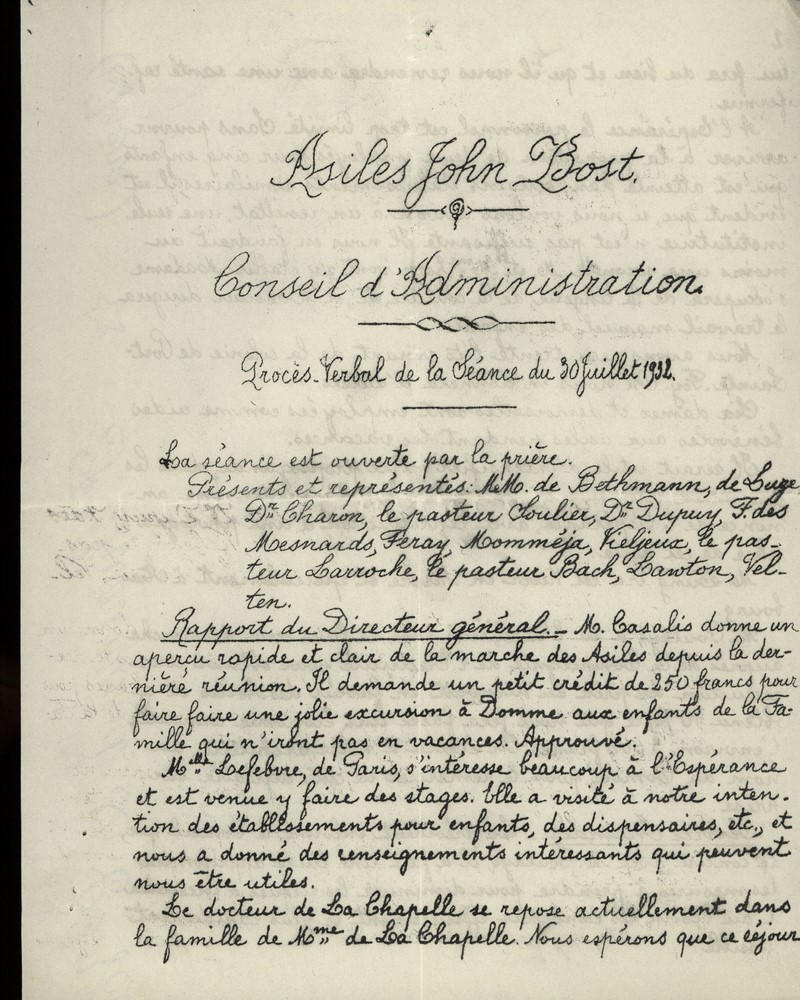 Asiles John Bost.
Conseil d'Administration.
Procès-Verbal de la Séance du 30 Juillet 1932.
La séance est ouverte par la prière.
Présents et représentés: MM. de Bethmann, de Luze
Dr Charon, le pasteur Soulier, Dr Dupuy, F. des
Mesnards, Feray, Momméja, Vieljeux, le pas-
teur Larroche, le pasteur Bach, Lawton, Vel-
ten.
Rapport du Directeur général. — M. Casalis donne un
aperçu rapide et clair de la marche des Asiles depuis la der-
nière réunion. Il demande un petit crédit de 250 francs pour
faire faire une jolie excursion à Domme aux enfants de la Fa-
mille qui n'iront pas en vacances. Approuvé.
Melle Lefebvre, de Paris, s'intéresse beaucoup à l'Espérance
et est venue y faire des stages. Elle a visité à notre inten-
tion des établissements pour enfants, des dispensaires, etc., et
nous a donné des renseignements intéressants qui peuvent
nous être utiles.
Le docteur de La Chapelle se repose actuellement dans
la famille de Mme de La Chapelle. Nous espérons que ce séjour